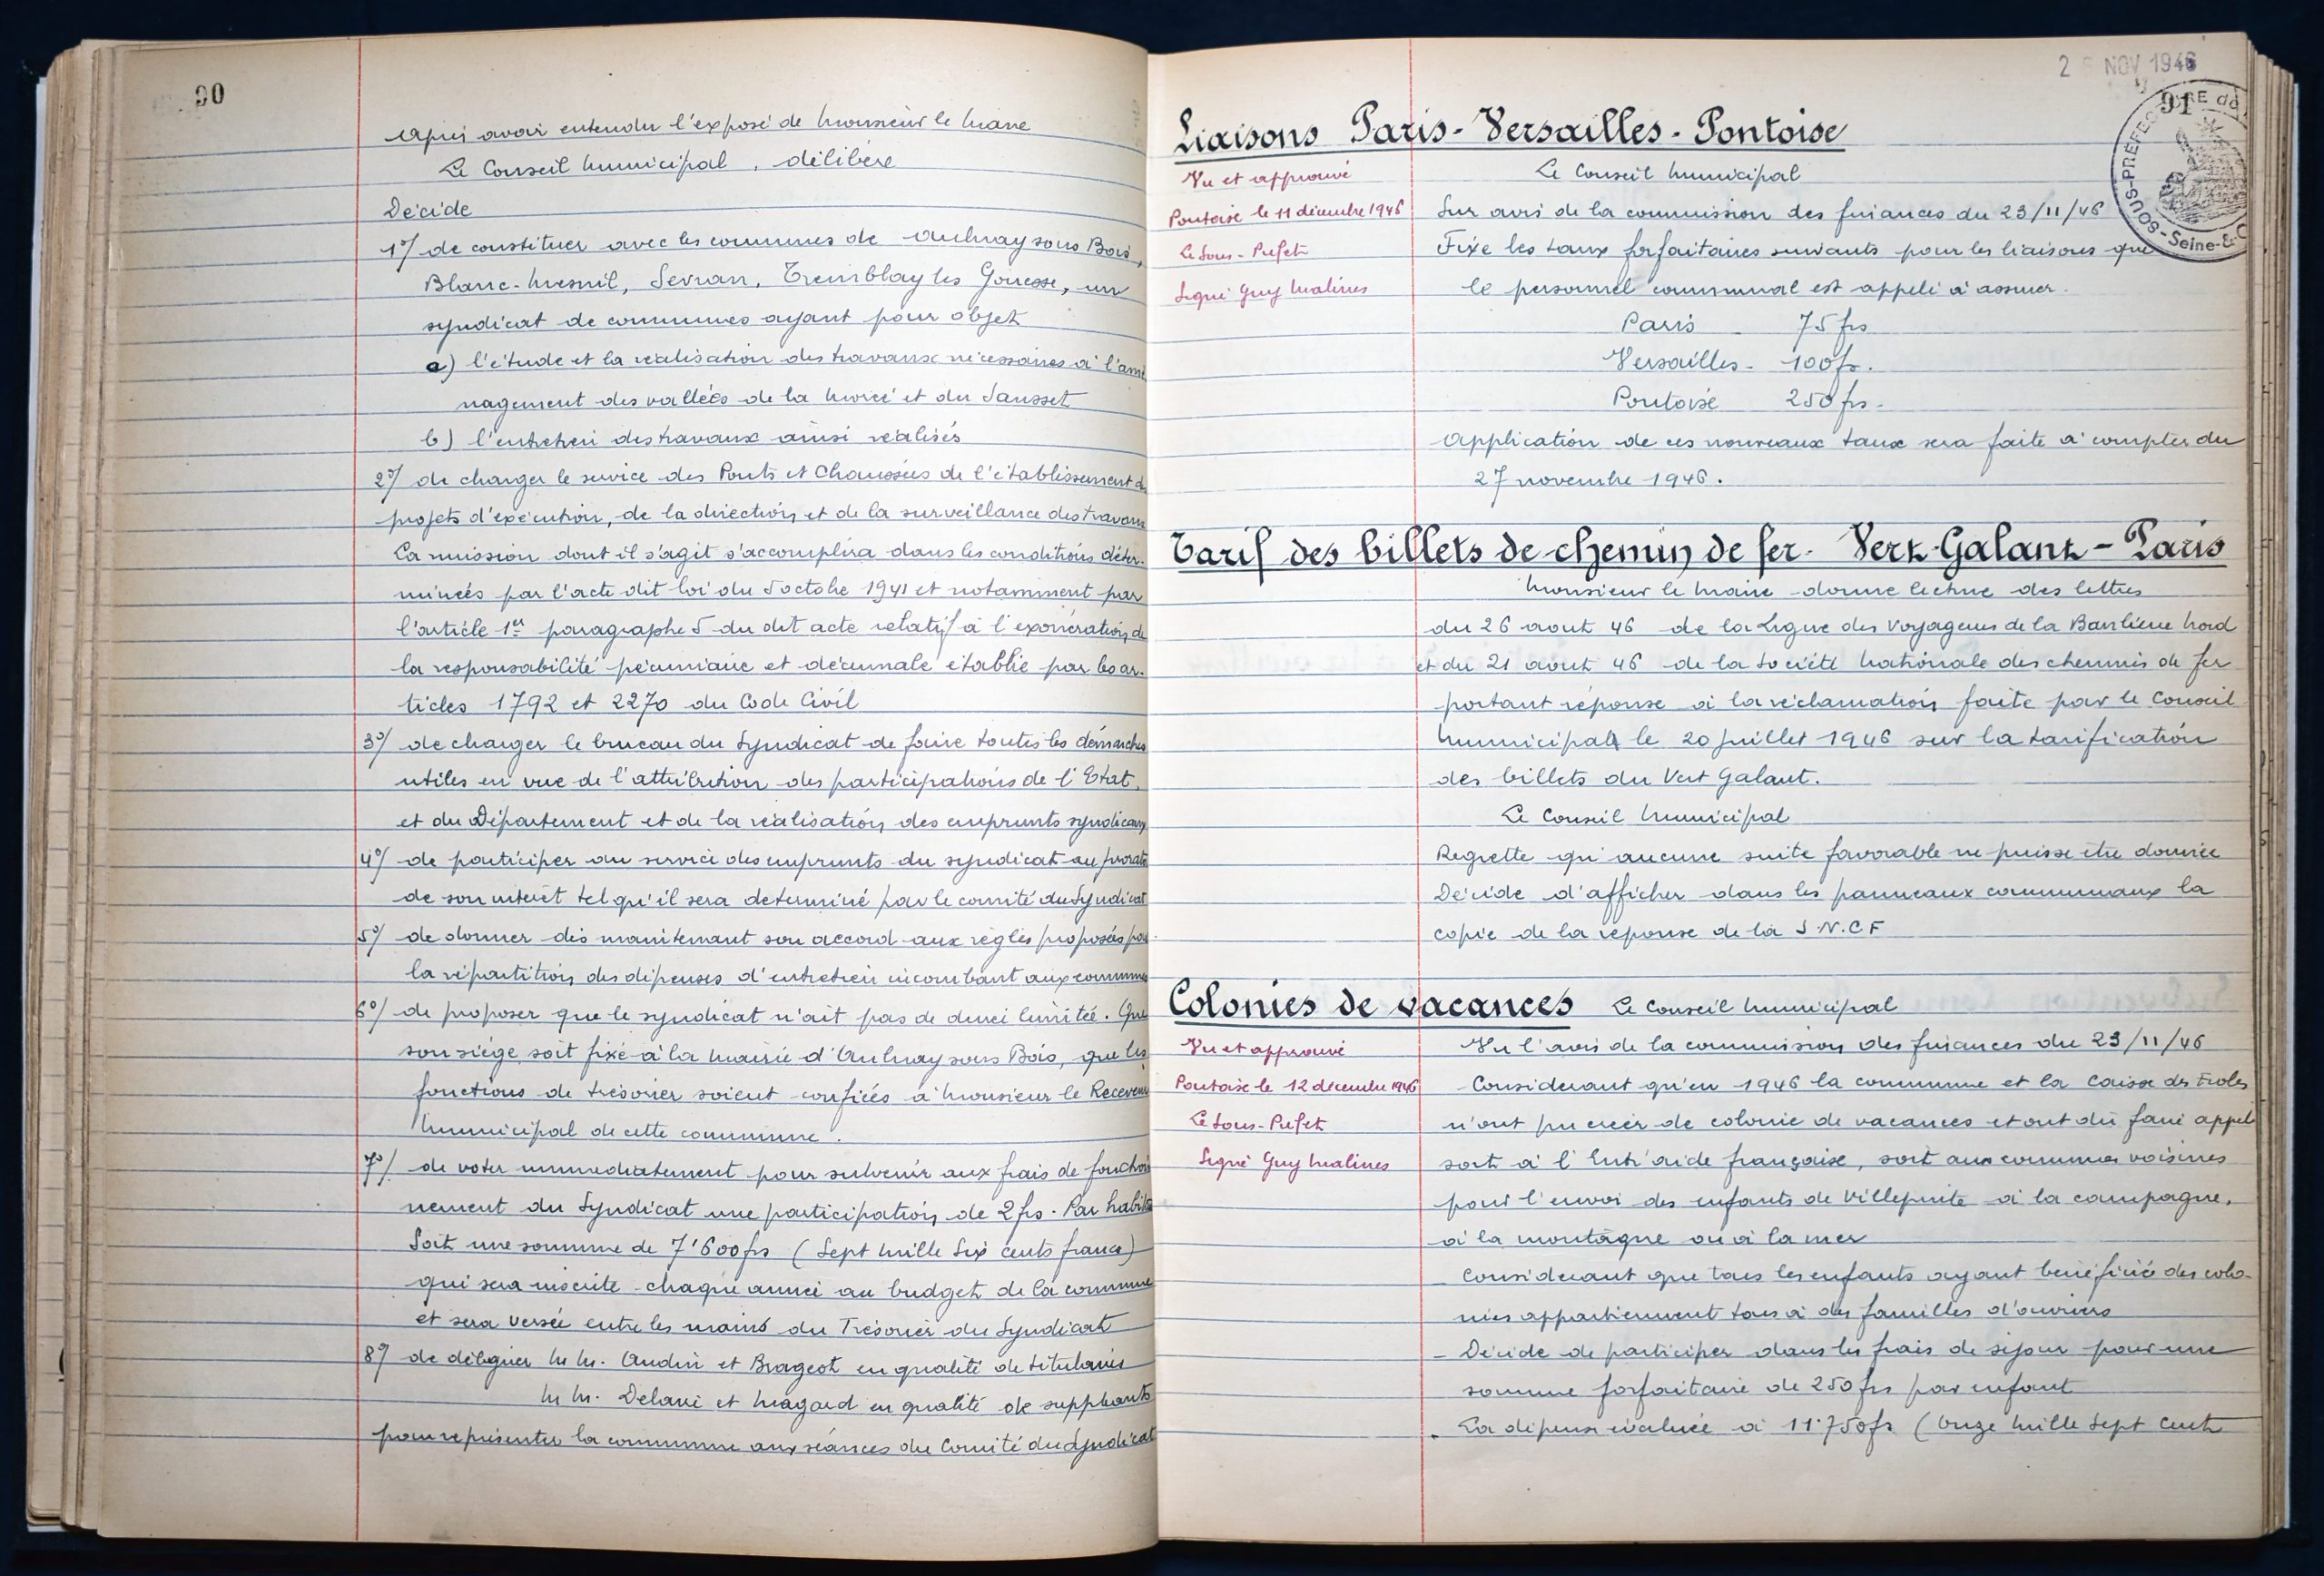 90
Après avoir entendu l'exposé de Monsieur le Maire
Le Conseil Municipal, délibère
Décide
1°/ de constituer avec les communes de Aulnay sous Bois,
Blanc-Mesnil, Sevran, Tremblay les Gonesse, un
syndicat de communes ayant pour objet
a) l'étude et la réalisation des travaux nécessaires à l'amé
nagement des vallées de la Morée et du Sausset
b) l'entretien des travaux ainsi réalisés
2°/ de charger le service des Ponts et Chaussées de l'établissement de
projets d'exécution, de la direction et de la surveillance des travaux
La mission dont il s'agit s'accomplira dans les conditions déter-
minées par l'acte dit loi du 5 octobre 1941 et notamment par
l'article 1er paragraphe 5 du dit acte relatif à l'exonération de
la responsabilité pécuniaire et décennale établie par les ar-
ticles 1792 et 2270 du Code Civil
3°/ de charger le bureau du Syndicat de faire toutes les démarches
utiles en vue de l'attribution des participations de l'Etat,
et du Département et de la réalisation des emprunts syndicaux
4°/ de participer au service des emprunts du syndicat au prorata
de son intérêt tel qu'il sera déterminé par le comité du Syndicat
5°/ de donner dès maintenant son accord aux règles proposées pour
la répartition des dépenses d'entretien incombant aux communes
6°/ de proposer que le syndicat n'ait pas de durée limitée. Que
son siège soit fixé à la mairie d'Aulnay sous Bois, que les
fonctions de trésorier soient confiées à Monsieur le Receveur
Municipal de cette commune.
7°/ de voter immédiatement pour subvenir aux frais de fonction
nement du Syndicat une participation de 2 frs. Par habitant
Soit une somme de 7'600 frs (Sept Mille Six cents francs)
qui sera inscrite chaque année au budget de la commune
et sera versée entre les mains du Trésorier du Syndicat
8°/ de déléguer M M. Audin et Brageot en qualité de titulaires
M M. Delarue et Magard en qualité de suppléants
pour représenter la commune aux séances du Comité du Syndicat
NOV 1946
91
SOUS-PRÉFECTURE de
Seine-&-O
Liaisons Paris-Versailles-Pontoise
Vu et approuvé
Pontoise le 11 décembre 1946
Le Sous-Préfet
Signé Guy Malines
Le Conseil Municipal
Sur avis de la commission des finances du 23/11/46
Fixe les taux forfaitaires suivants pour les liaisons que
le personnel communal est appelé à assurer.
Paris - 75 frs
Versailles - 100 frs.
Pontoise 250 frs.
Application de ces nouveaux taux sera faite à compter du
27 novembre 1946.
Tarif des billets de chemin de fer. Vert-Galant - Paris
Monsieur le Maire donne lecture des lettres
du 26 aout 46 de la Ligue des Voyageurs de la Banlieue Nord
et du 21 aout 46 de la Société Nationale des chemins de fer
portant réponse à la réclamation faite par le Conseil
Municipal le 20 juillet 1946 sur la tarification
des billets du Vert Galant.
Le Conseil Municipal
Regrette qu'aucune suite favorable ne puisse être donnée
Décide d'afficher dans les panneaux communaux la
copie de la réponse de la S.N.C.F
Colonies de vacances Le Conseil Municipal
Vu et approuvé
Pontoise le 12 décembre 1946
Le Sous-Préfet
Signé Guy Malines
Vu l'avis de la commission des finances du 23/11/46
Considérant qu'en 1946 la commune et la Caisse des Ecoles
n'ont pu créer de colonie de vacances et ont dû faire appel
soit à l'Entr'aide française, soit aux communes voisines
pour l'envoi des enfants de Villepinte à la campagne,
à la montagne ou à la mer
Considérant que tous les enfants ayant bénéficié des colo-
nies appartiennent tous à des familles d'ouvriers
- Décide de participer dans les frais de séjour pour une
somme forfaitaire de 250 frs par enfant
La dépense évaluée à 11'750 frs (Onze Mille Sept Cent